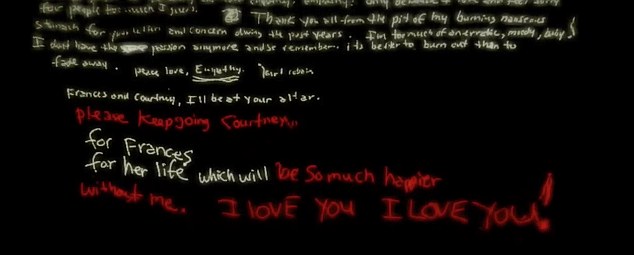 for people
Thank you all from the pit of my burning nauseous
stomach for your and concern during the past years. I'm too much of an erratic, moody, baby!
I dont have the passion anymore and so remember. its better to burn out than to
fade away. peace love, Empathy. Kurt Cobain
Frances and Courtney, I'll be at your altar.
please keep going Courtney...
for Frances
for her life which will be so much happier
without me. I LOVE YOU I LOVE YOU!